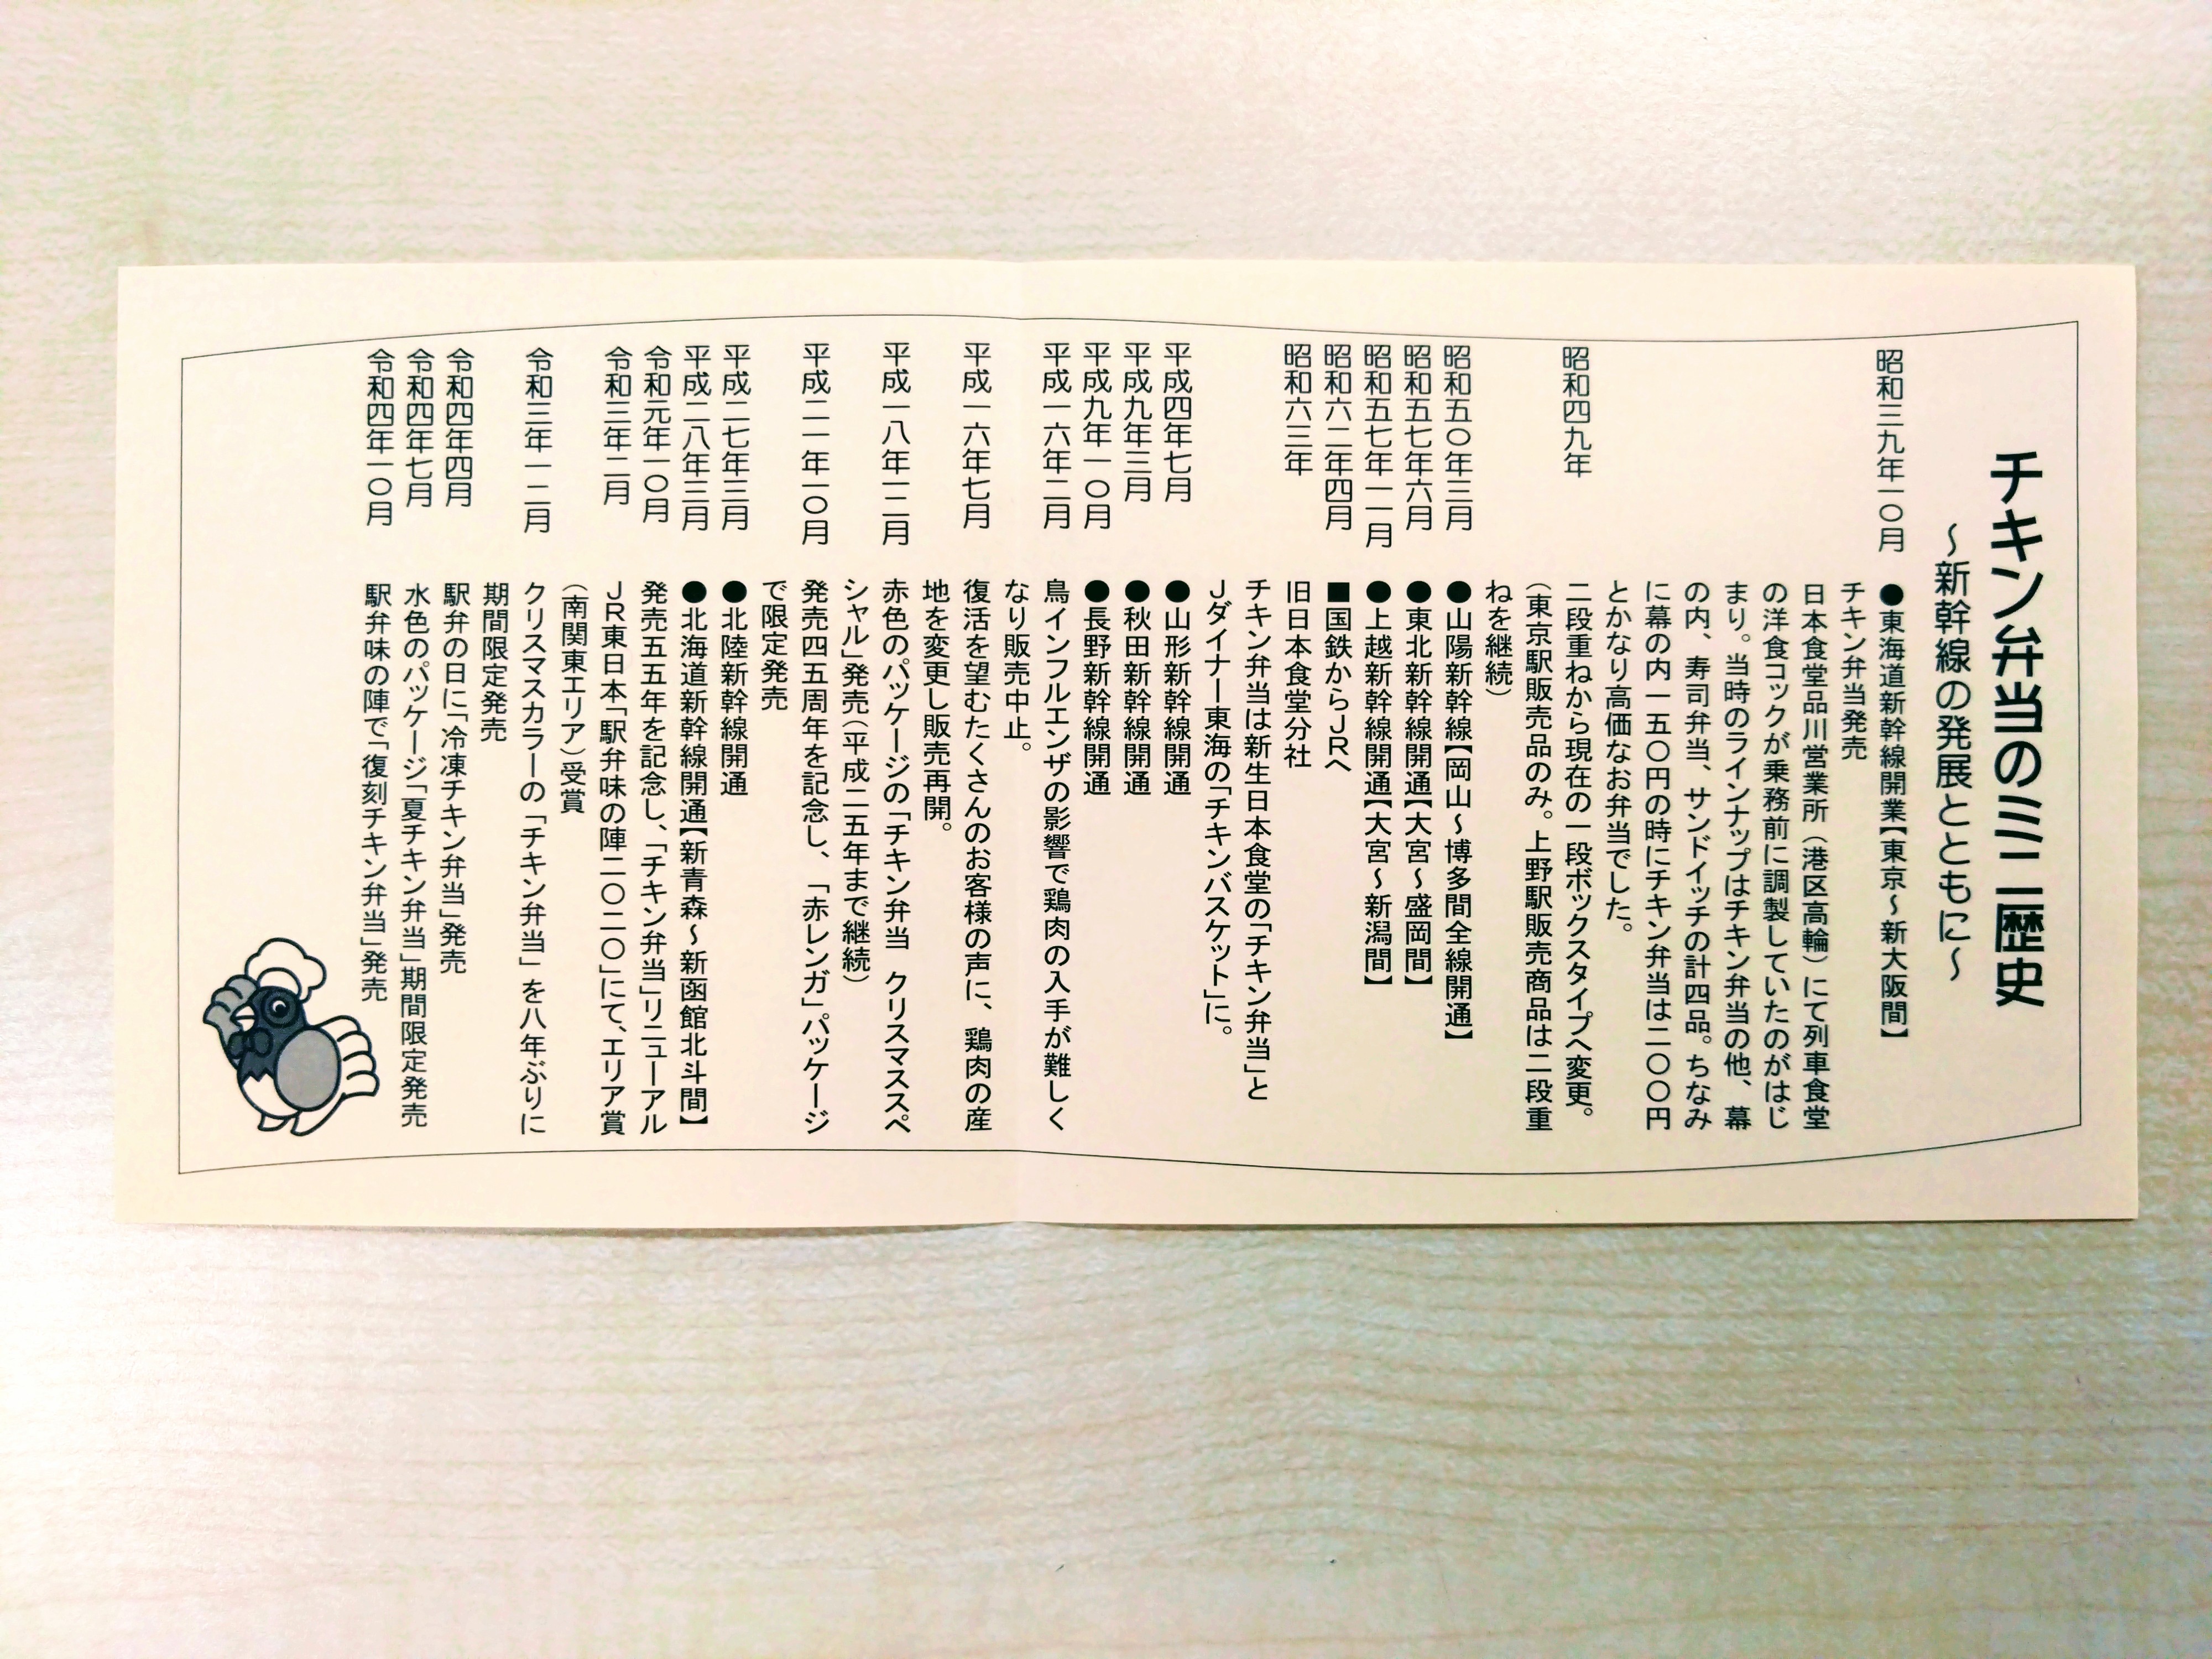 チキン弁当のミニ歴史
～新幹線の発展とともに～
昭和三九年一〇月 ●東海道新幹線開業【東京～新大阪間】
チキン弁当発売
日本食堂品川営業所（港区高輪）にて列車食堂
の洋食コックが乗務前に調製していたのがはじ
まり。当時のラインナップはチキン弁当の他、幕
の内、寿司弁当、サンドイッチの計四品。ちなみ
に幕の内一五〇円の時にチキン弁当は二〇〇円
とかなり高価なお弁当でした。
昭和四九年 二段重ねから現在の一段ボックスタイプへ変更。
（東京駅販売品のみ。上野駅販売商品は二段重
ねを継続）
昭和五〇年三月 ●山陽新幹線【岡山～博多間全線開通】
昭和五七年六月 ●東北新幹線開通【大宮～盛岡間】
昭和五七年一一月 ●上越新幹線開通【大宮～新潟間】
昭和六二年四月 ■国鉄からＪＲへ
昭和六三年 旧日本食堂分社
チキン弁当は新生日本食堂の「チキン弁当」と
Ｊダイナー東海の「チキンバスケット」に。
平成四年七月 ●山形新幹線開通
平成九年三月 ●秋田新幹線開通
平成九年一〇月 ●長野新幹線開通
平成一六年二月 鳥インフルエンザの影響で鶏肉の入手が難しく
なり販売中止。
平成一六年七月 復活を望むたくさんのお客様の声に、鶏肉の産
地を変更し販売再開。
平成一八年一二月 赤色のパッケージの「チキン弁当 クリスマススペ
シャル」発売（平成二五年まで継続）
平成二一年一〇月 発売四五周年を記念し、「赤レンガ」パッケージ
で限定発売
平成二七年三月 ●北陸新幹線開通
平成二八年三月 ●北海道新幹線開通【新青森～新函館北斗間】
令和元年一〇月 発売五五年を記念し、「チキン弁当」リニューアル
令和三年二月 ＪＲ東日本「駅弁味の陣二〇二〇」にて、エリア賞
（南関東エリア）受賞
令和三年一二月 クリスマスカラーの「チキン弁当」を八年ぶりに
期間限定発売
令和四年四月 駅弁の日に「冷凍チキン弁当」発売
令和四年七月 水色のパッケージ「夏チキン弁当」期間限定発売
令和四年一〇月 駅弁味の陣で「復刻チキン弁当」発売